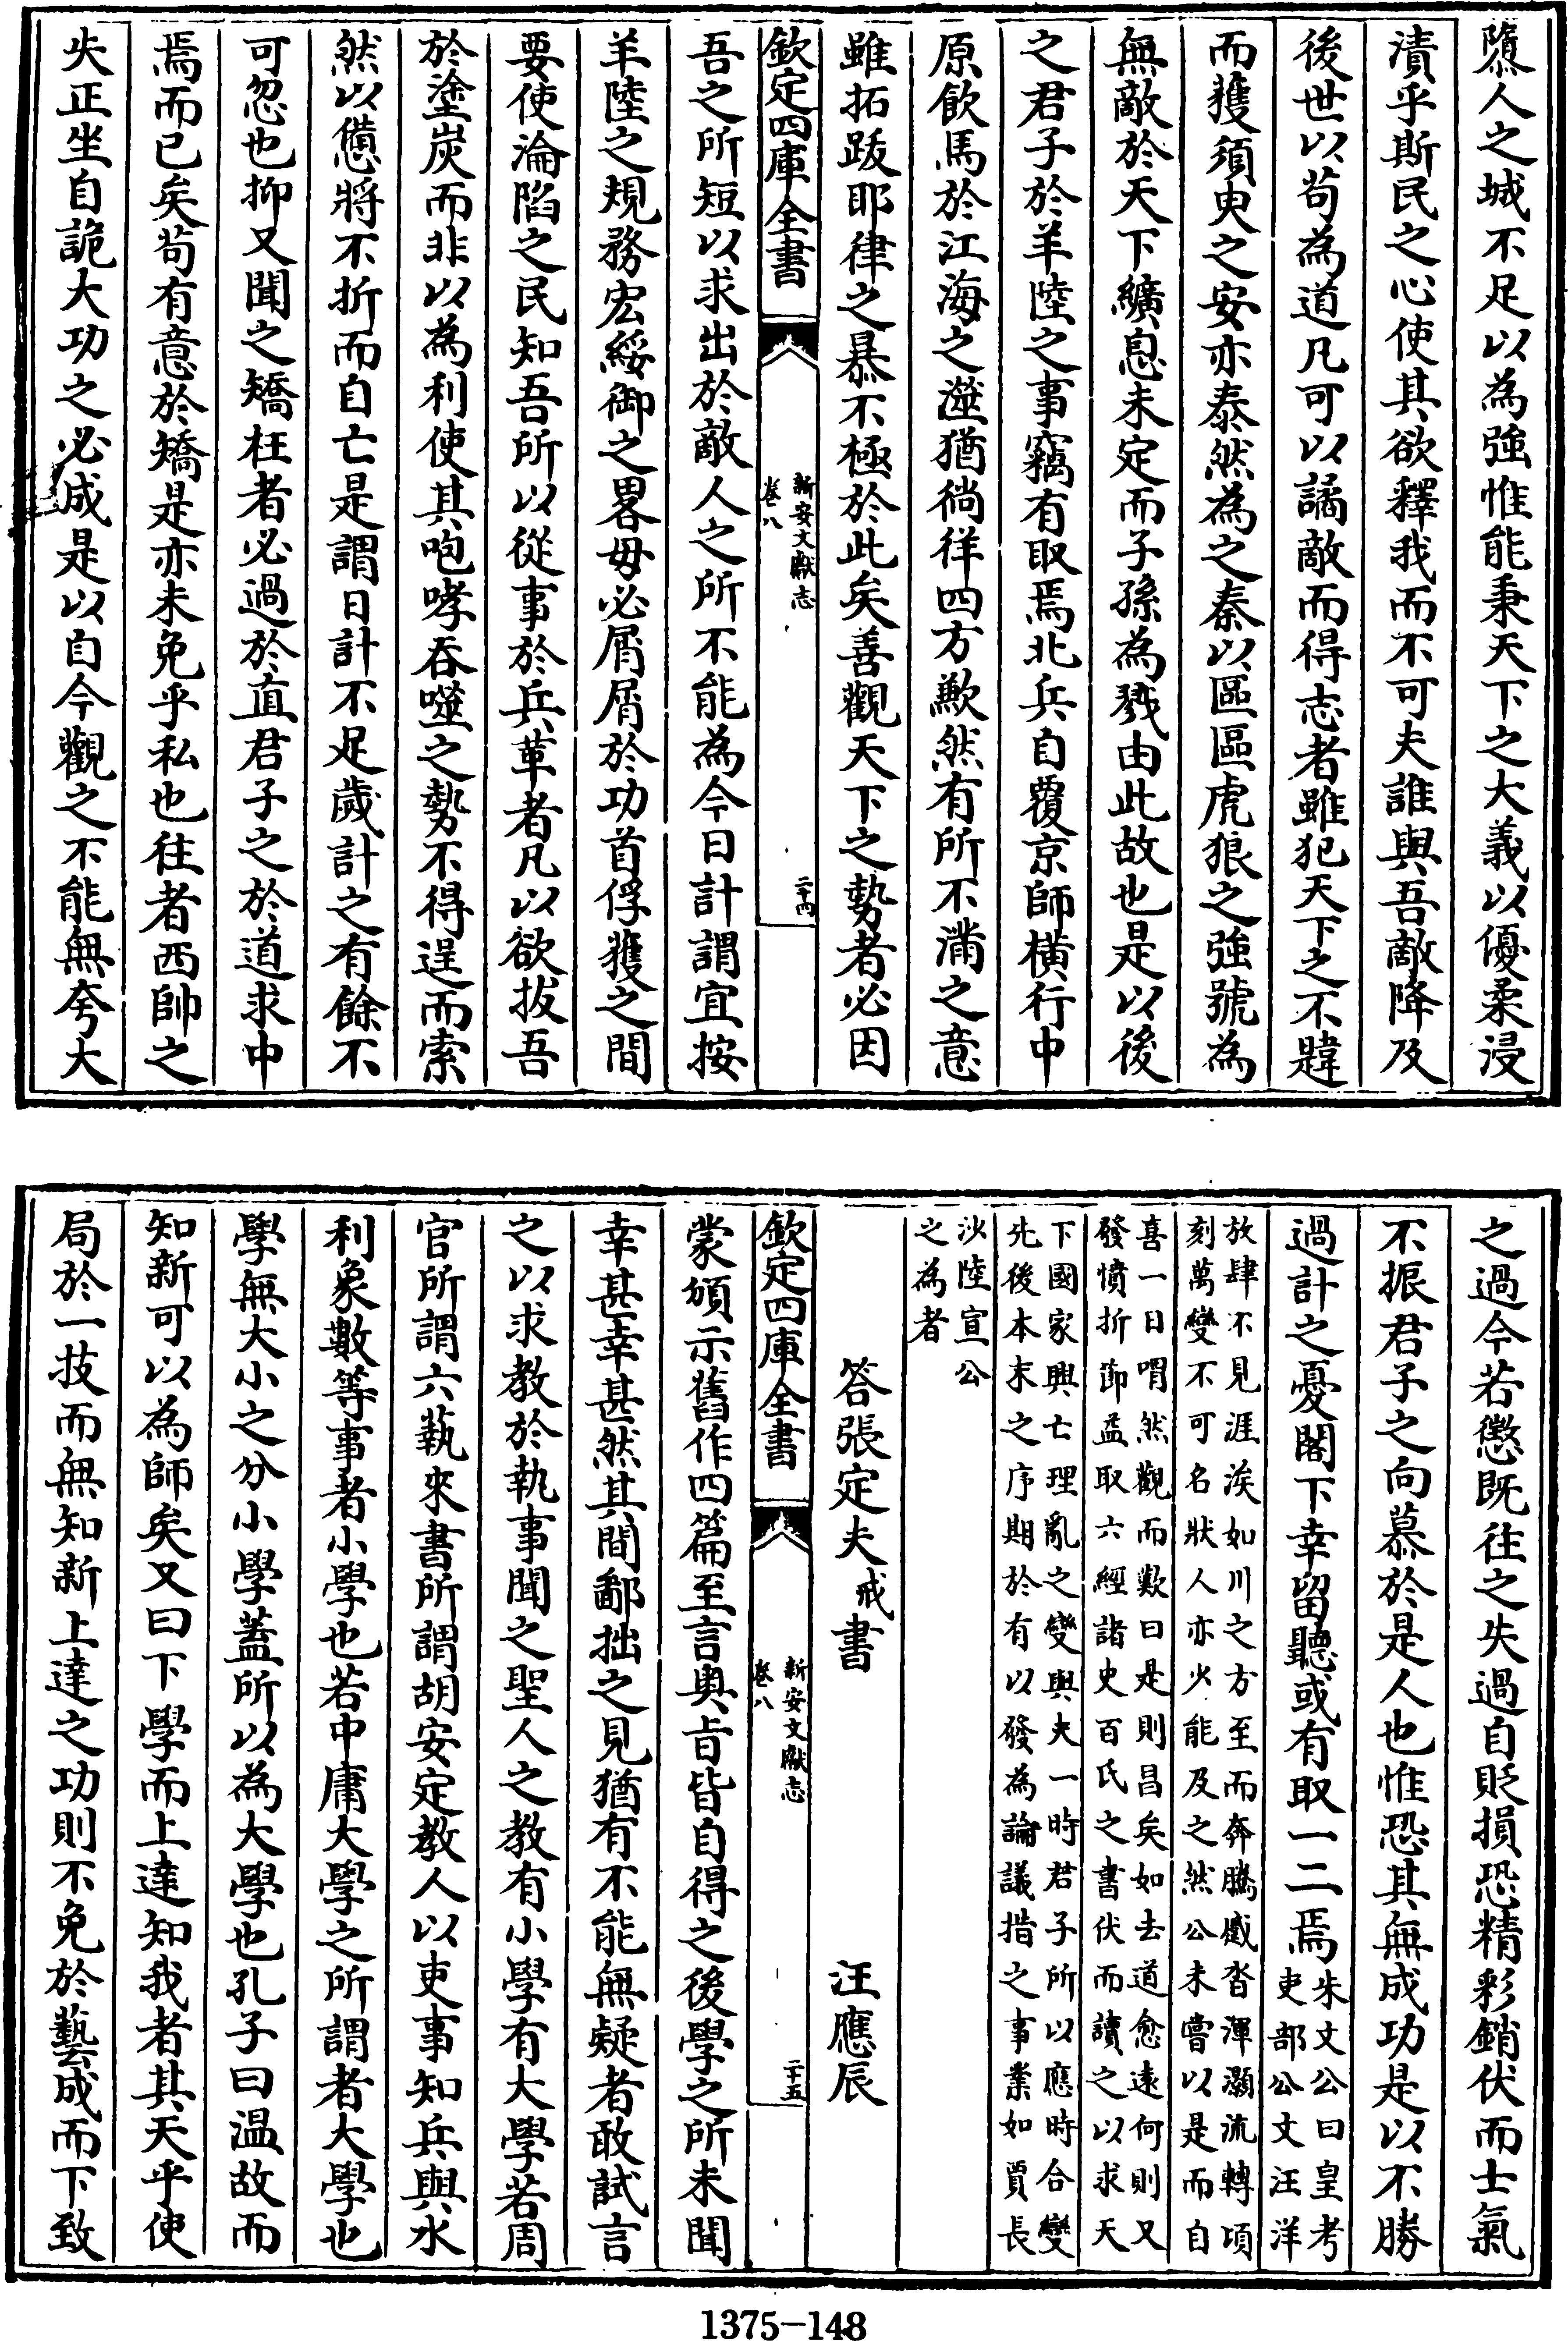 隳人之城不足以為強惟能秉天下之大義以優柔浸
漬乎斯民之心使其欲釋我而不可夫誰與吾敵降及
後世以苟為道凡可以譎敵而得志者雖犯天下之不韙
而獲須臾之安亦泰然為之秦以區區虎狼之強號為
無敵於天下纊息未定而子孫為戮由此故也是以後
之君子於羊陸之事竊有取焉北兵自覆京師橫行中
原飲馬於江海之澨猶徜徉四方歉然有所不滿之意
雖拓跋耶律之暴不極於此矣善觀天下之勢者必因
欽定四庫全書
新安文獻志
卷八
二十四
吾之所短以求出於敵人之所不能為今日計謂宜按
羊陸之規務宏綏御之畧毋必屑屑於功首俘獲之間
要使淪陷之民知吾所以從事於兵革者凡以欲拔吾
於塗炭而非以為利使其咆哮吞噬之勢不得逞而索
然以憊將不折而自亡是謂日計不足歲計之有餘不
可忽也抑又聞之矯枉者必過於直君子之於道求中
焉而已矣苟有意於矯是亦未免乎私也往者西帥之
失正坐自詭大功之必成是以自今觀之不能無夸大
之過今若懲既往之失過自貶損恐精彩銷伏而士氣
不振君子之向慕於是人也惟恐其無成功是以不勝
過計之憂閣下幸留聽或有取一二焉朱文公曰皇考
吏部公文汪洋
放肆不見涯涘如川之方至而奔騰蹙沓渾灝流轉頃
刻萬變不可名狀人亦少能及之然公未嘗以是而自
喜一日喟然觀而歎曰是則昌矣如去道愈遠何則又
發憤折節益取六經諸史百氏之書伏而讀之以求天
下國家興亡理亂之變與夫一時君子所以應時合變
先後本末之序期於有以發為論議措之事業如賈長
沙陸宣公
之為者
答張定夫戒書
汪應辰
欽定四庫全書
新安文獻志
卷八
二十五
蒙頒示舊作四篇至言奥旨皆自得之後學之所未聞
幸甚幸甚然其間鄙拙之見猶有不能無疑者敢試言
之以求教於執事聞之聖人之教有小學有大學若周
官所謂六藝來書所謂胡安定教人以吏事知兵與水
利象數等事者小學也若中庸大學之所謂者大學也
學無大小之分小學蓋所以為大學也孔子曰温故而
知新可以為師矣又曰下學而上達知我者其天乎使
局於一技而無知新上達之功則不免於藝成而下致
1375-148